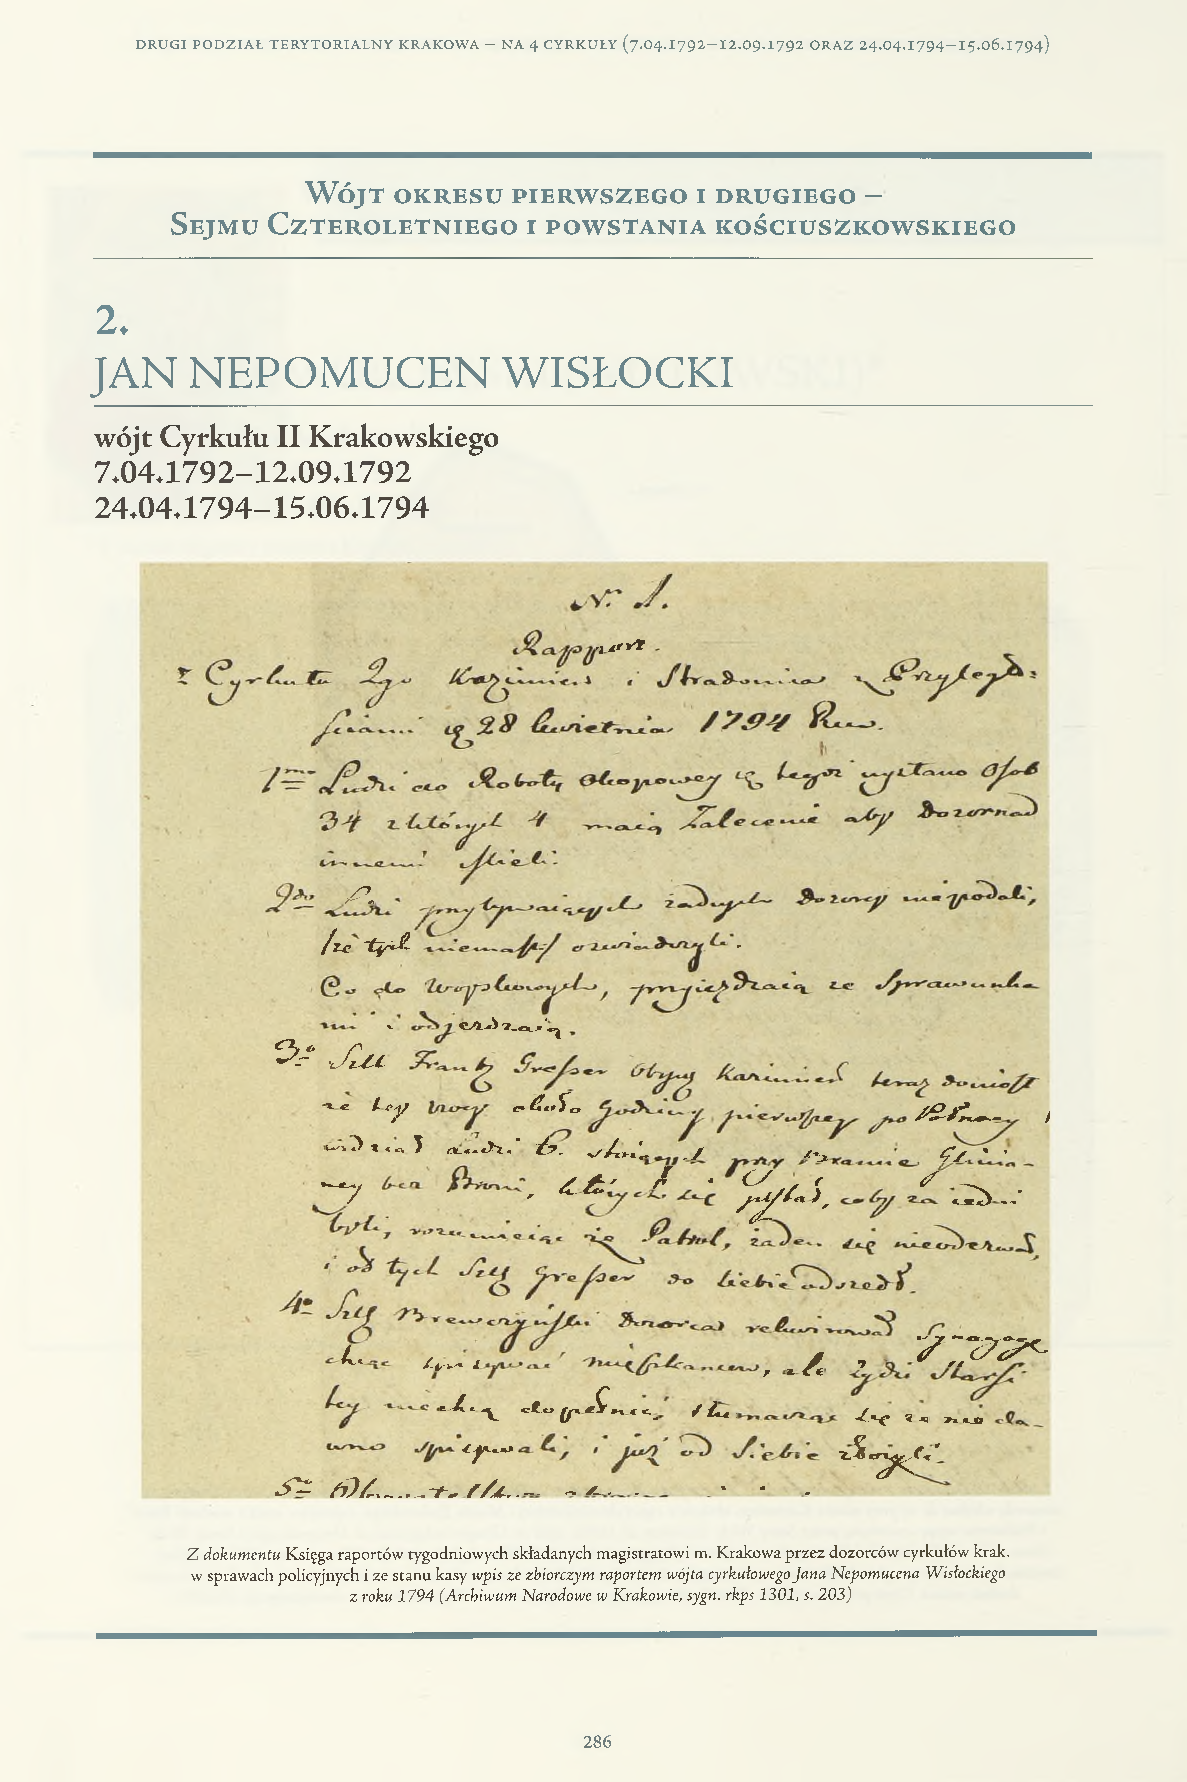 DRUGI PODZIAŁ TERYTORIALNY KRAKOWA – NA 4 CYRKUŁY (7.04.1792–12.09.1792 ORAZ 24.04.1794–15.06.1794)
Wójt okresu pierwszego i drugiego –
Sejmu Czteroletniego i powstania kościuszkowskiego
2.
JAN NEPOMUCEN WISŁOCKI
wójt Cyrkułu II Krakowskiego
7.04.1792–12.09.1792
24.04.1794–15.06.1794
Nr. 1.
Rapport.
z Cyrkułu 2go Kazimierz i Stradomia z Przyległo:
ściami 28 kwietnia 1794 Roku.
1mo Ludzi do Roboty Okopowey tegoż wysłano Osob
34 z których 4 maią Zalecenie aby Dozor nad
innemi mieli.
2do Ludzi przybywaiących żadnych Dozorcy niepodali,
że tych niemasz oświadczyli.
Co do Woyskowych, przyieżdzaią ze Sprawunka
mi i odjezdzaią.
3o Szll Frantz Gresser Obyw Kazimierz teraz doniosł
że tey Nocy około Godziny pierwszey po Północy
widział Ludzi 6. stoiących przy Bramie Glinia-
ney bez Broni, których się pytał, coby za iedni
byli, rozumieiąc że Patrol, żaden się nieodezwał,
i od tych Szll Gresser do siebie odszedł.
4o Szll Dozorca rekwirował Synagogę
chcąc spisywać mieszkancow, ale Żydzi Starsi
tey niechcą dopełnić, tłumacząc się że nie da-
wno spisywali, i już od Siebie złożyli.
5o
Z dokumentu Księga raportów tygodniowych składanych magistratowi m. Krakowa przez dozorców cyrkułów krak.
w sprawach policyjnych i ze stanu kasy wpis ze zbiorczym raportem wójta cyrkułowego Jana Nepomucena Wisłockiego
z roku 1794 (Archiwum Narodowe w Krakowie, sygn. rkps 1301, s. 203)
286